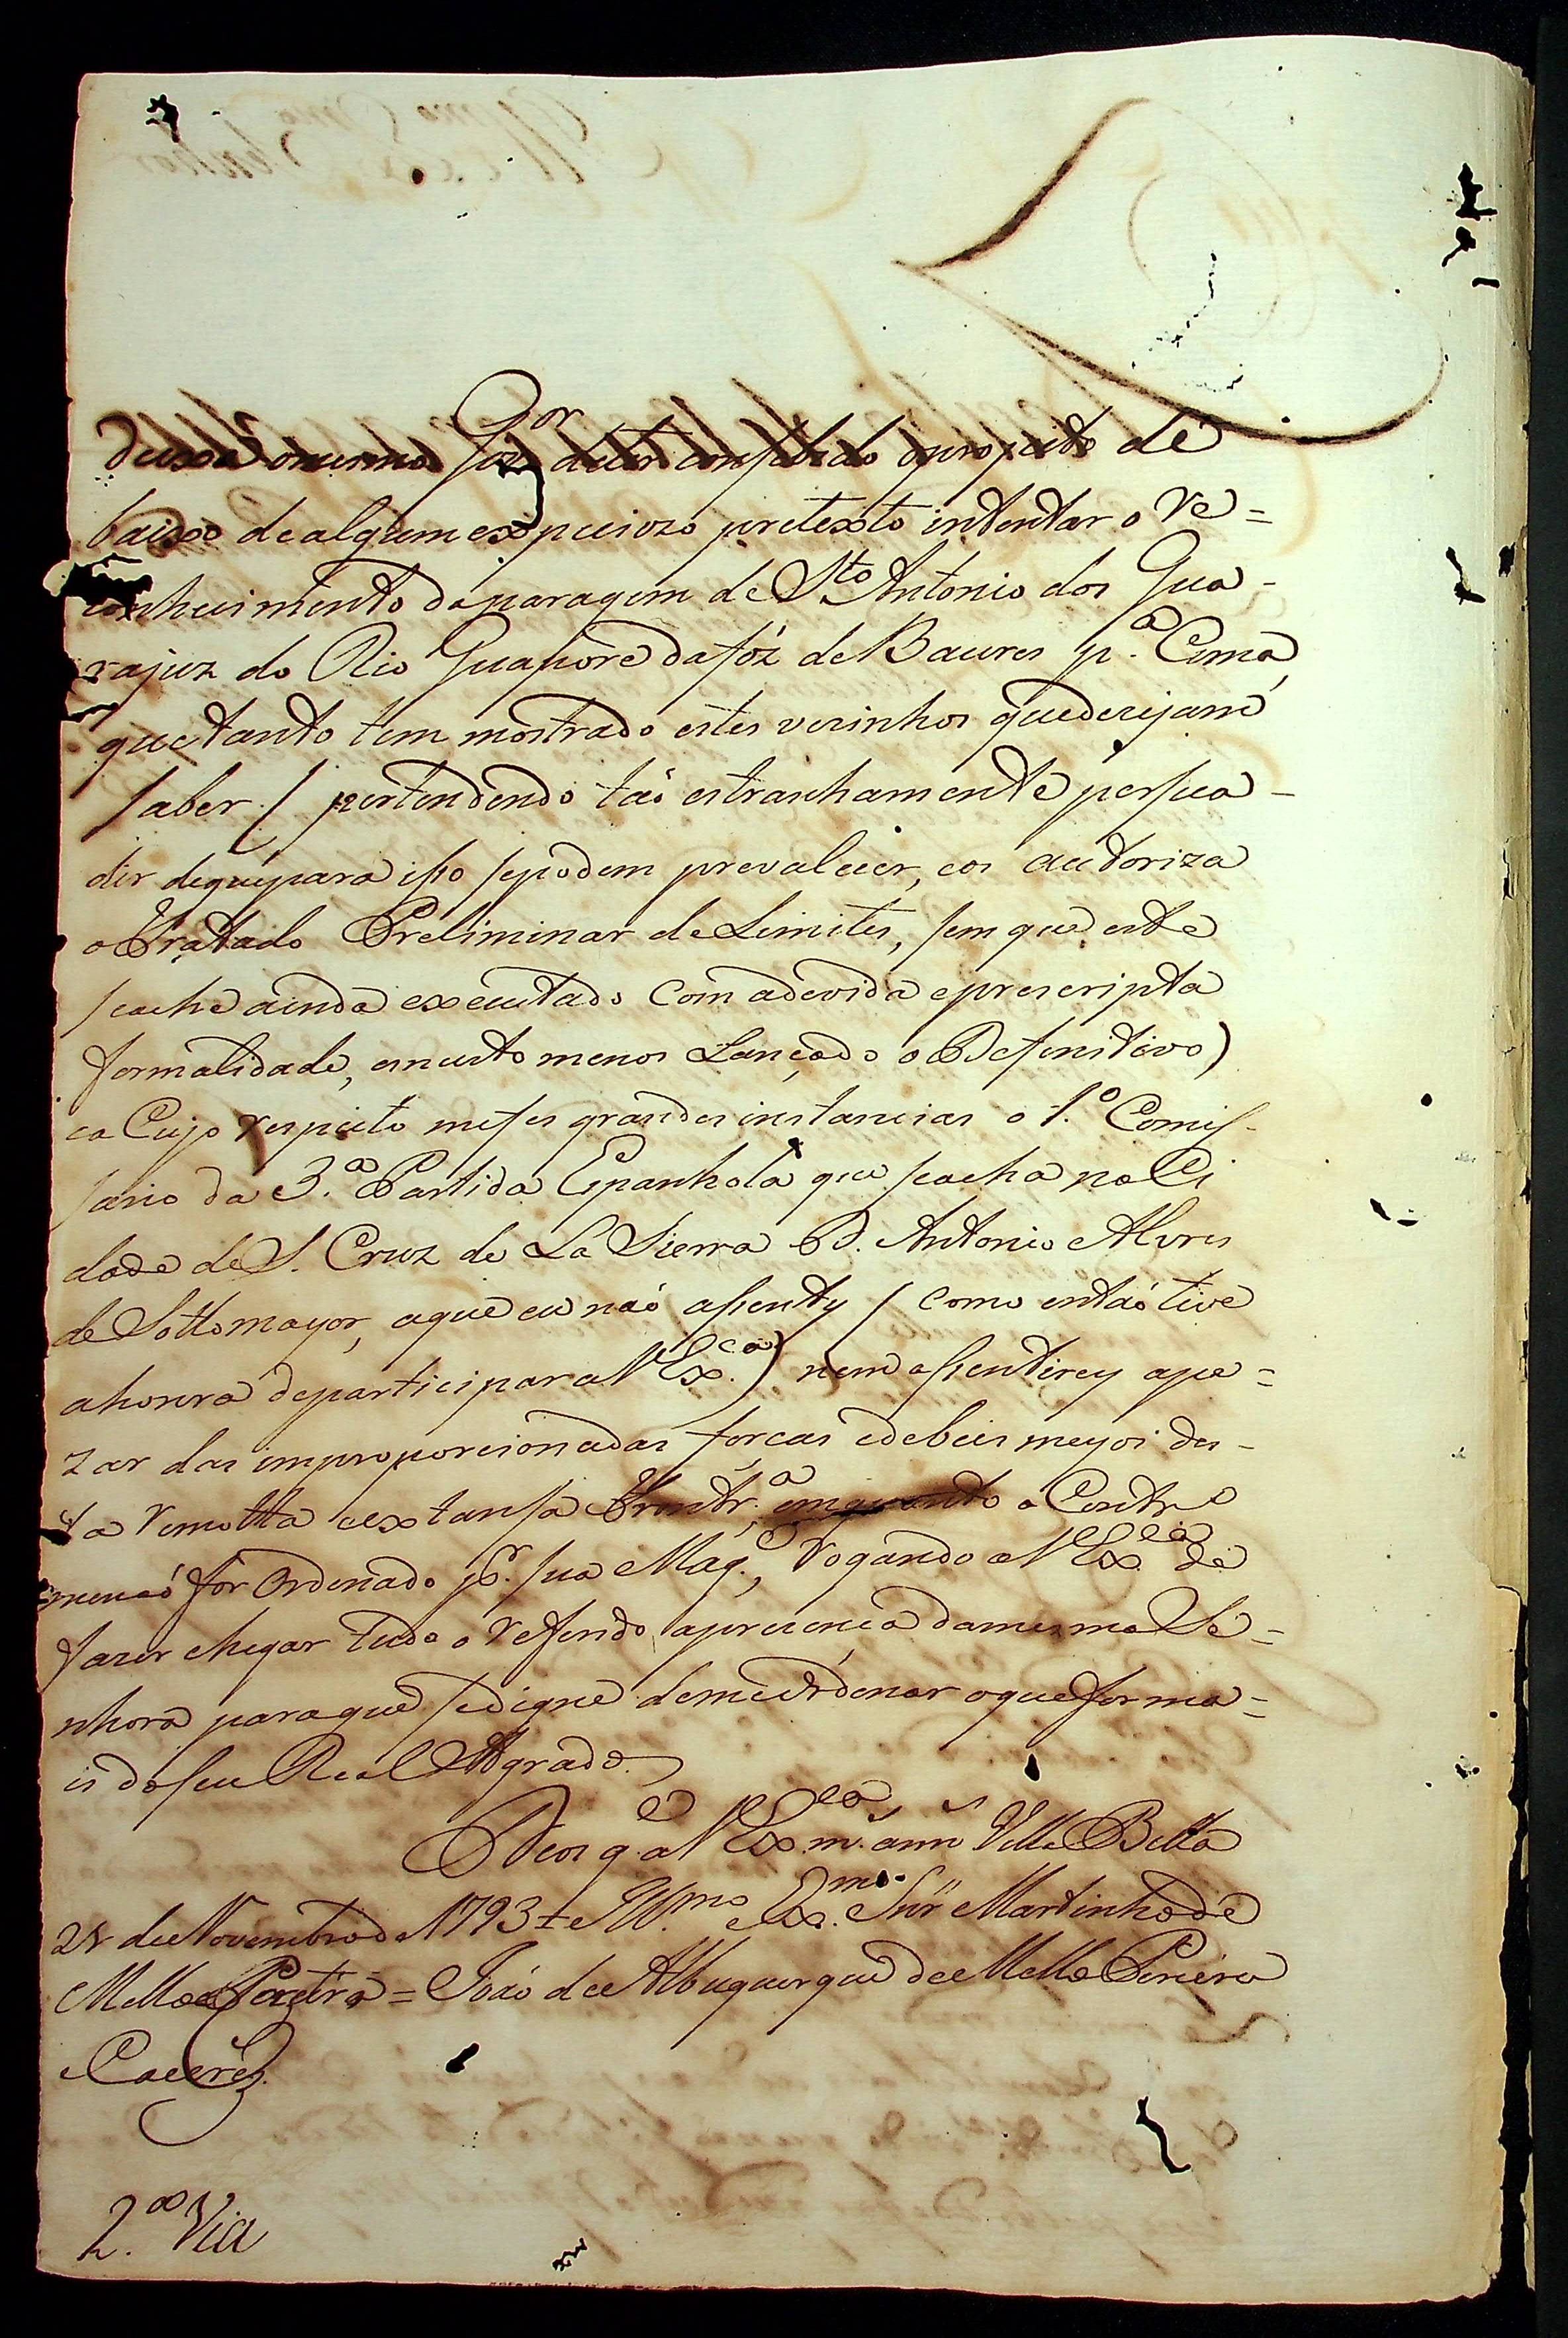 deixa o mesmo Gov.or de ter concebido o projecto de
baixo de algum expeciozo pretexto intentar o re=
conhecimento da paragem de S.to Antonio dos Gua-
rajuz do Rio Guaporé da fóz de Baures p.a Cima,
que tanto tem mostrado estes vezinhos que dezejam
saber / pertendendo taó estranhamente persua-
dir de que para isso se podem prevalecer, e os autoriza
o Tratado Preliminar de Limites, sem que este
se ache ainda executado com a devida e prescripta
formalidade, e muito menos Lançado o Defenitivo)
e a Cujo respeito me fes grandes instancias o 1.o Comis-
sario da 3.a Partida Espanhola que se acha na Ci
dade de S. Cruz de La Sierra D. Antonio Alvres
de Sottomayor, a que eu naó assenty / como entaó tive
a honrra de participar a V Ex.ca) nem assentirey ape=
zar das improporcionadas forças e debeis meyos des-
ta remotta e extansa Frontr.a emquanto o Contr.o
me naó for Ordenado p.r sua Mag.e, rogando a V Ex.ca de
fazer chegar tudo o referido a prezença da mesma Se=
nhora para que se digne de me Ordenar o que for ma=
is do seu Real Agrado.
Deos g.e a V Ex.ca m.s ann.s Villa Bella
de Novembro de 1793 = Ill.mo e Ex.mo Snr Martinho de
Mello e Castro = Joaó de Albuquerque de Mello Pereira
e Caceres
2.a Via